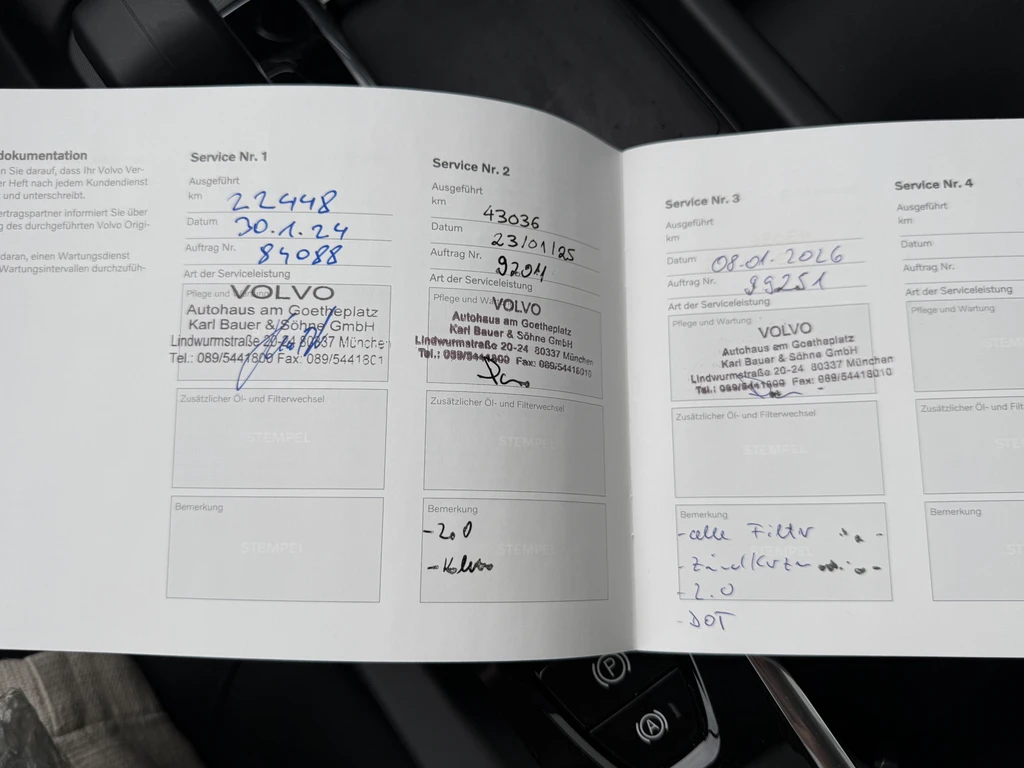 dokumentation
n Sie darauf, dass Ihr Volvo Ver-
er Heft nach jedem Kundendienst
t und unterschreibt.
ertragspartner informiert Sie über
g des durchgeführten Volvo Origi-
daran, einen Wartungsdienst
Wartungsintervallen durchzufüh-
Service Nr. 1
Ausgeführt
km 22448
Datum 30.1.24
Auftrag Nr. 84088
Art der Serviceleistung
Pflege und Wartung
VOLVO
Autohaus am Goetheplatz
Karl Bauer & Söhne GmbH
Lindwurmstraße 20-24 80337 München
Tel.: 089/5441800 Fax: 089/5441801
Zusätzlicher Öl- und Filterwechsel
STEMPEL
Bemerkung
STEMPEL
Service Nr. 2
Ausgeführt
km 43036
Datum 23/01/25
Auftrag Nr. 9204
Art der Serviceleistung
Pflege und Wartung
VOLVO
Autohaus am Goetheplatz
Karl Bauer & Söhne GmbH
Lindwurmstraße 20-24 80337 München
Tel.: 089/5441800 Fax: 089/54418010
Zusätzlicher Öl- und Filterwechsel
STEMPEL
Bemerkung
STEMPEL
- 2.0
- Volvo
Service Nr. 3
Ausgeführt
km
Datum 08.01.2026
Auftrag Nr. 99251
Art der Serviceleistung
Pflege und Wartung
VOLVO
Autohaus am Goetheplatz
Karl Bauer & Söhne GmbH
Lindwurmstraße 20-24 80337 München
Tel.: 089/5441800 Fax: 089/54418010
Zusätzlicher Öl- und Filterwechsel
STEMPEL
Bemerkung
- alle Filter
- Zündkerzen
- 2.0
- DOT
Service Nr. 4
Ausgeführt
km
Datum
Auftrag Nr.
Art der Serviceleistung
Pflege und Wartung
Zusätzlicher Öl- und Filterw
STE
Bemerkung
STE
P
A